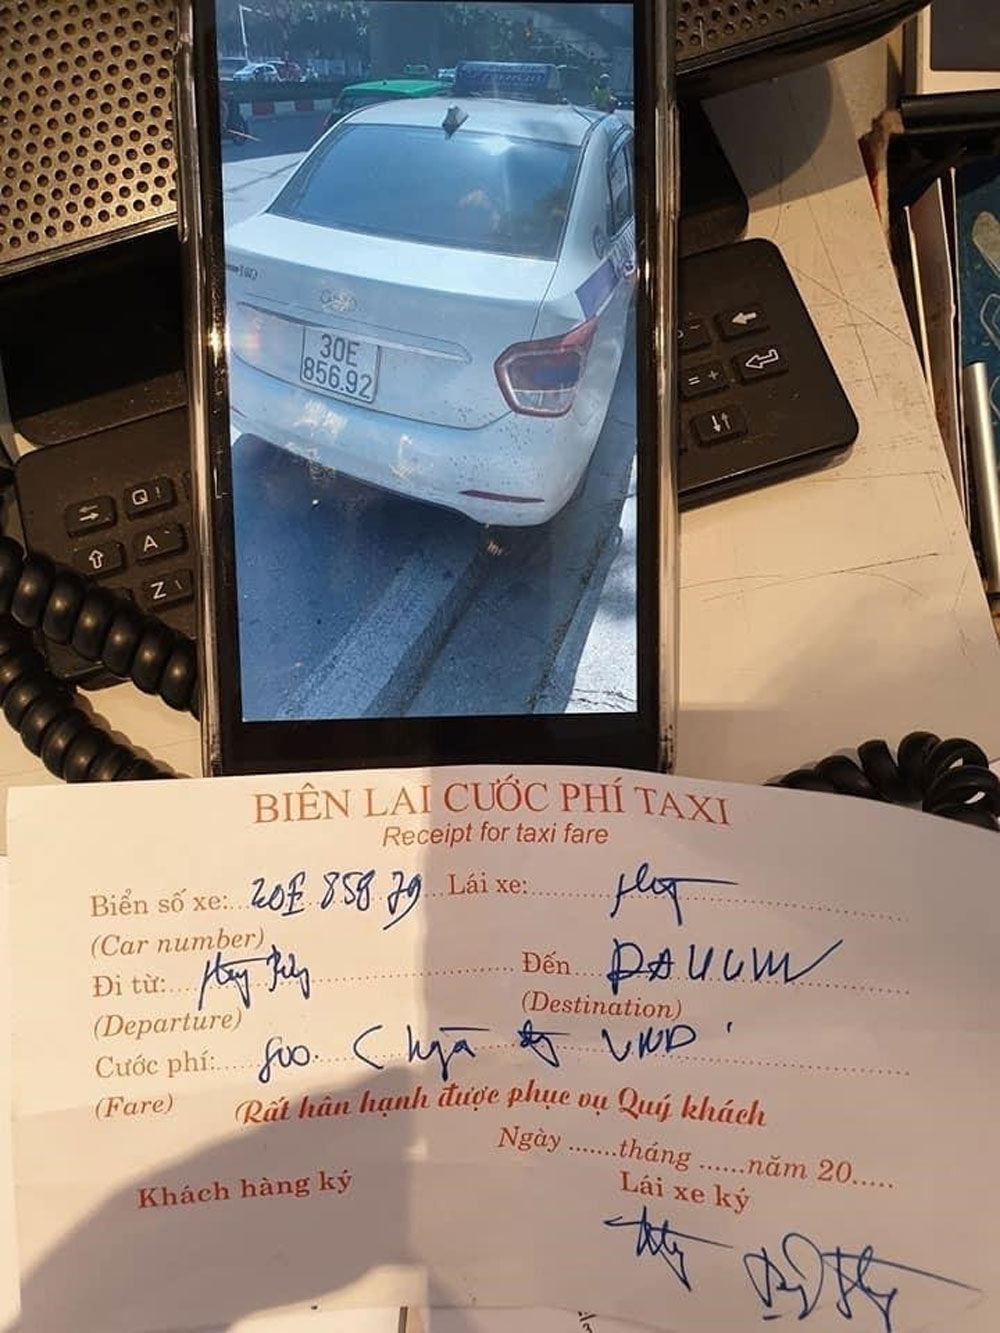 30E
856.92
Q !
A
Z \
= +
BIÊN LAI CƯỚC PHÍ TAXI
Receipt for taxi fare
Biển số xe: 20E 858.79 Lái xe:
(Car number)
Đi từ: Đến
(Departure) (Destination)
Cước phí: 800. VND
(Fare)
Rất hân hạnh được phục vụ Quý khách
Ngày ......tháng ......năm 20.....
Khách hàng ký Lái xe ký